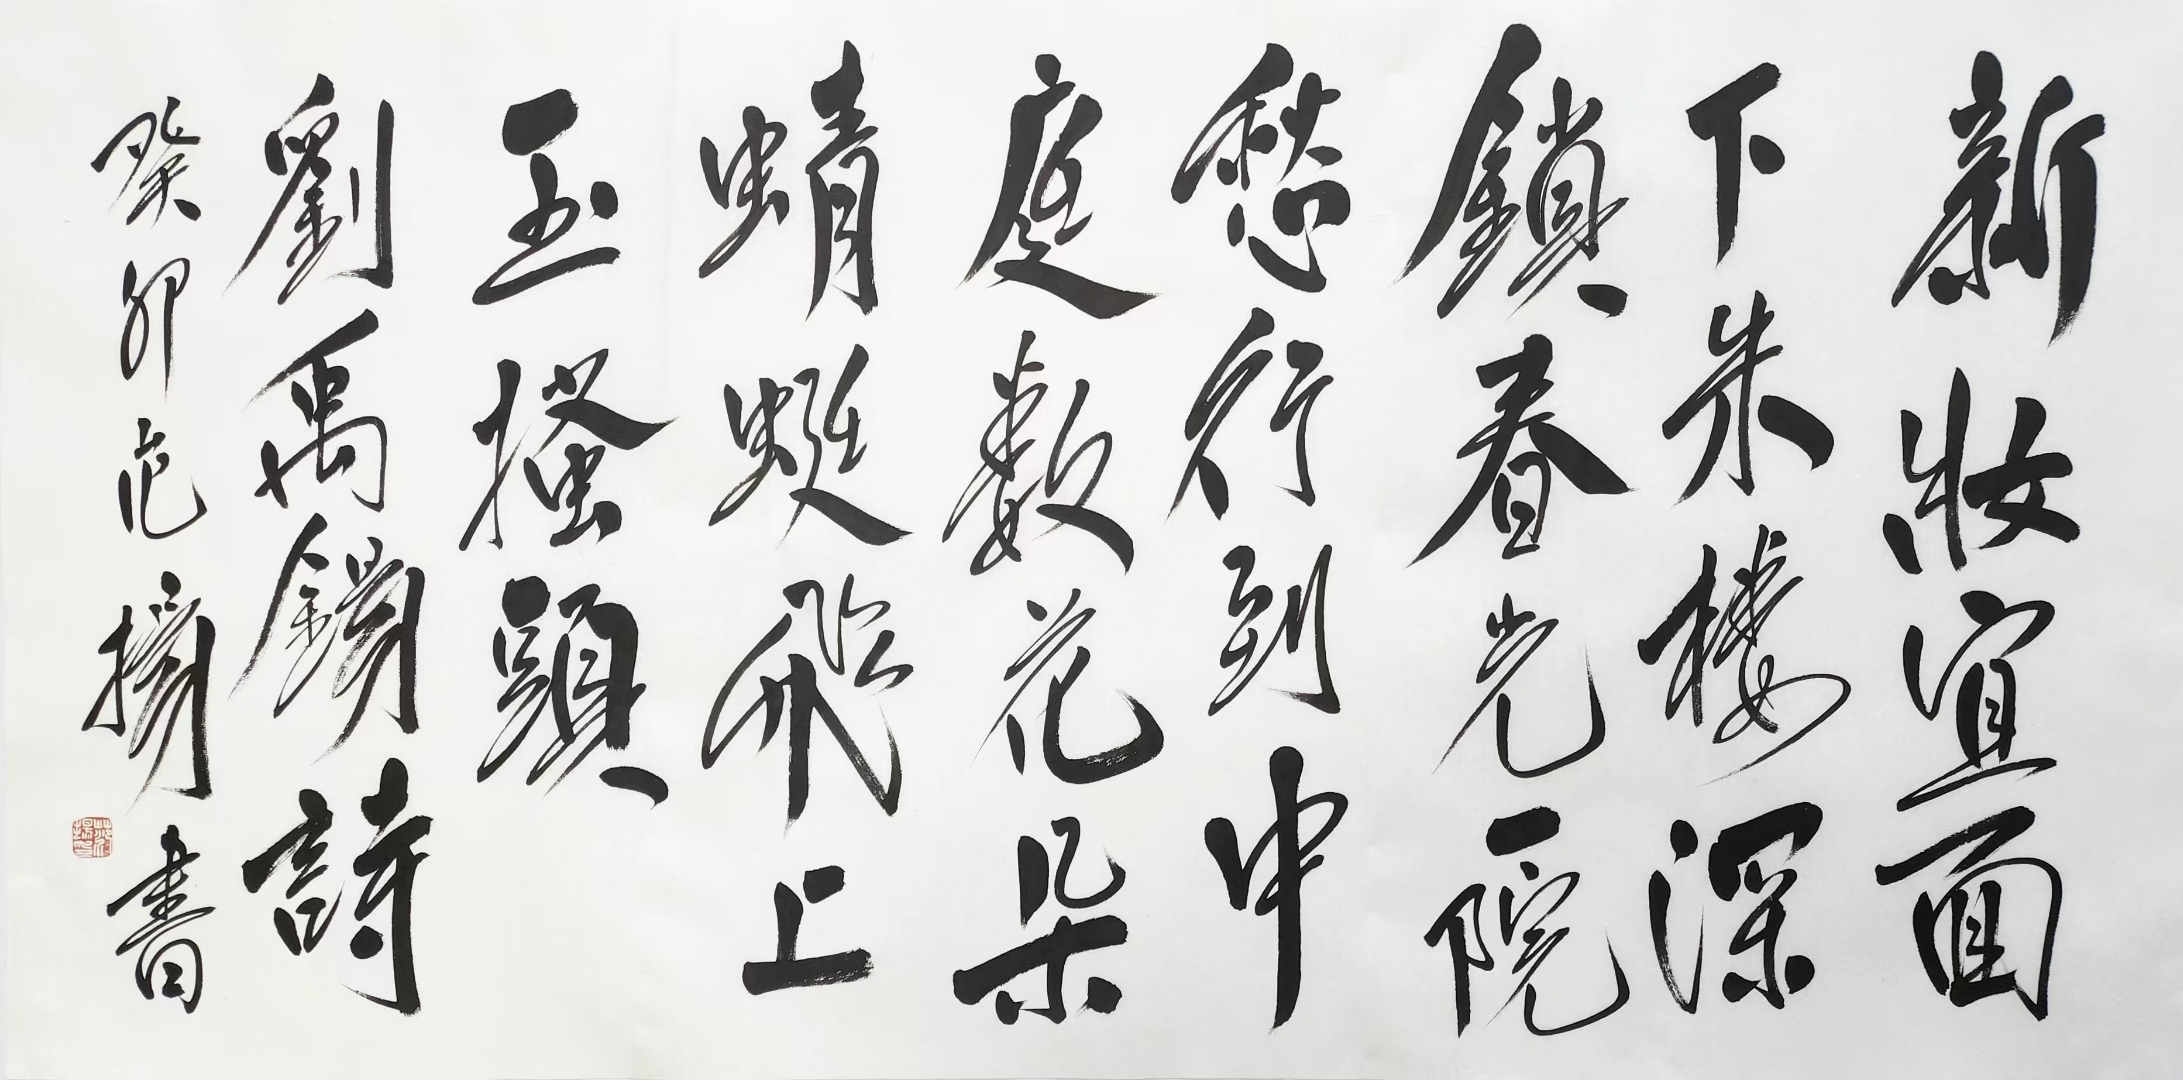 新妝宜面
下朱樓深
鎖春光一院
愁行到中
庭數花朵
蜻蜓飛上
玉搔頭
劉禹錫詩
癸卯范揚書